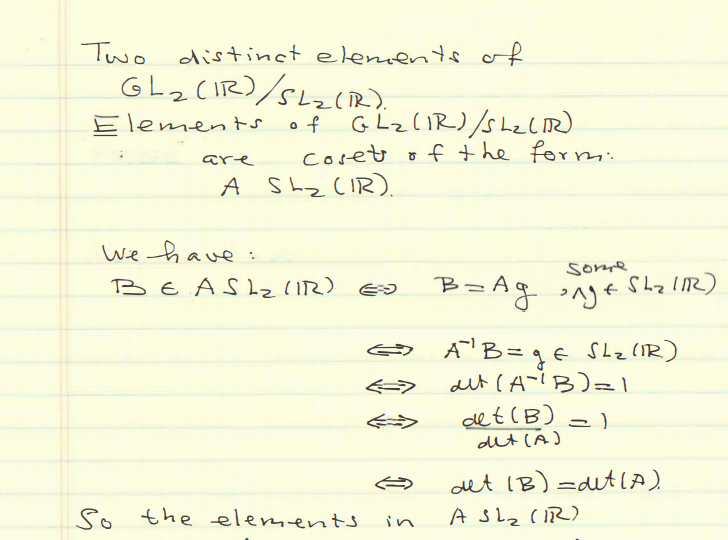 Two distinct elements of
GL₂(ℝ)/SL₂(ℝ).
Elements of GL₂(ℝ)/SL₂(ℝ)
are cosets of the form:
A SL₂(ℝ).
We have:
B ∈ A SL₂(ℝ) ⇔ B = Ag, some g ∈ SL₂(ℝ)
⇔ A⁻¹B = g ∈ SL₂(ℝ)
⇔ det(A⁻¹B) = 1
⇔ det(B)/det(A) = 1
⇔ det(B) = det(A).
So the elements in A SL₂(ℝ)